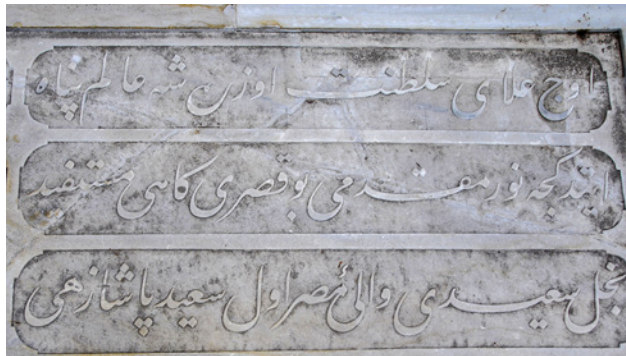 اوج علای سلطنت اوزره شه عالم پناه
ایتدكجه نور مقدمی بو قصری كاهی مستفید
نجل سعیدی والئ مصر اول سعید پاشا زهی